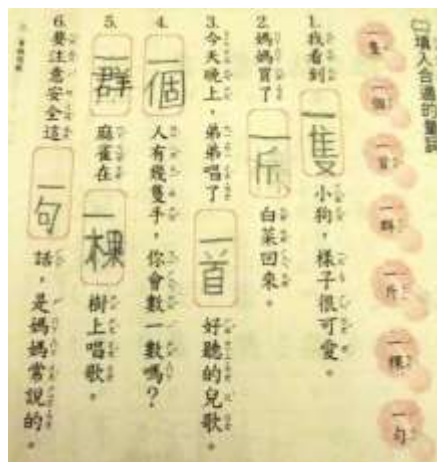 填入合適的量詞
一隻 一個 一首 一群 一斤 一棵 一句
1.我看到一隻小狗，樣子很可愛。
2.媽媽買了一斤白菜回來。
3.今天晚上，弟弟唱了一首好聽的兒歌。
4.一個人有幾隻手，你會數一數嗎？
5.一群麻雀在一棵樹上唱歌。
6.要注意安全這一句話，是媽媽常說的。